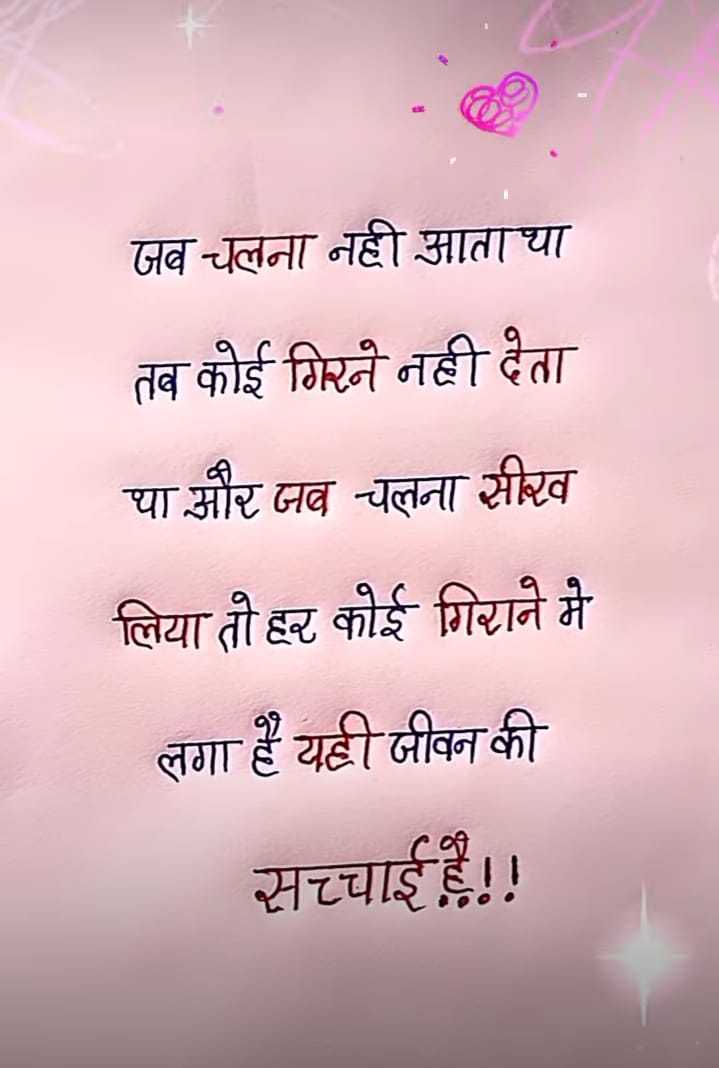 जब चलना नही आता था
तब कोई गिरने नही देता
था और जब चलना सीख
लिया तो हर कोई गिराने मे
लगा है यही जीवन की
सच्चाई है!!